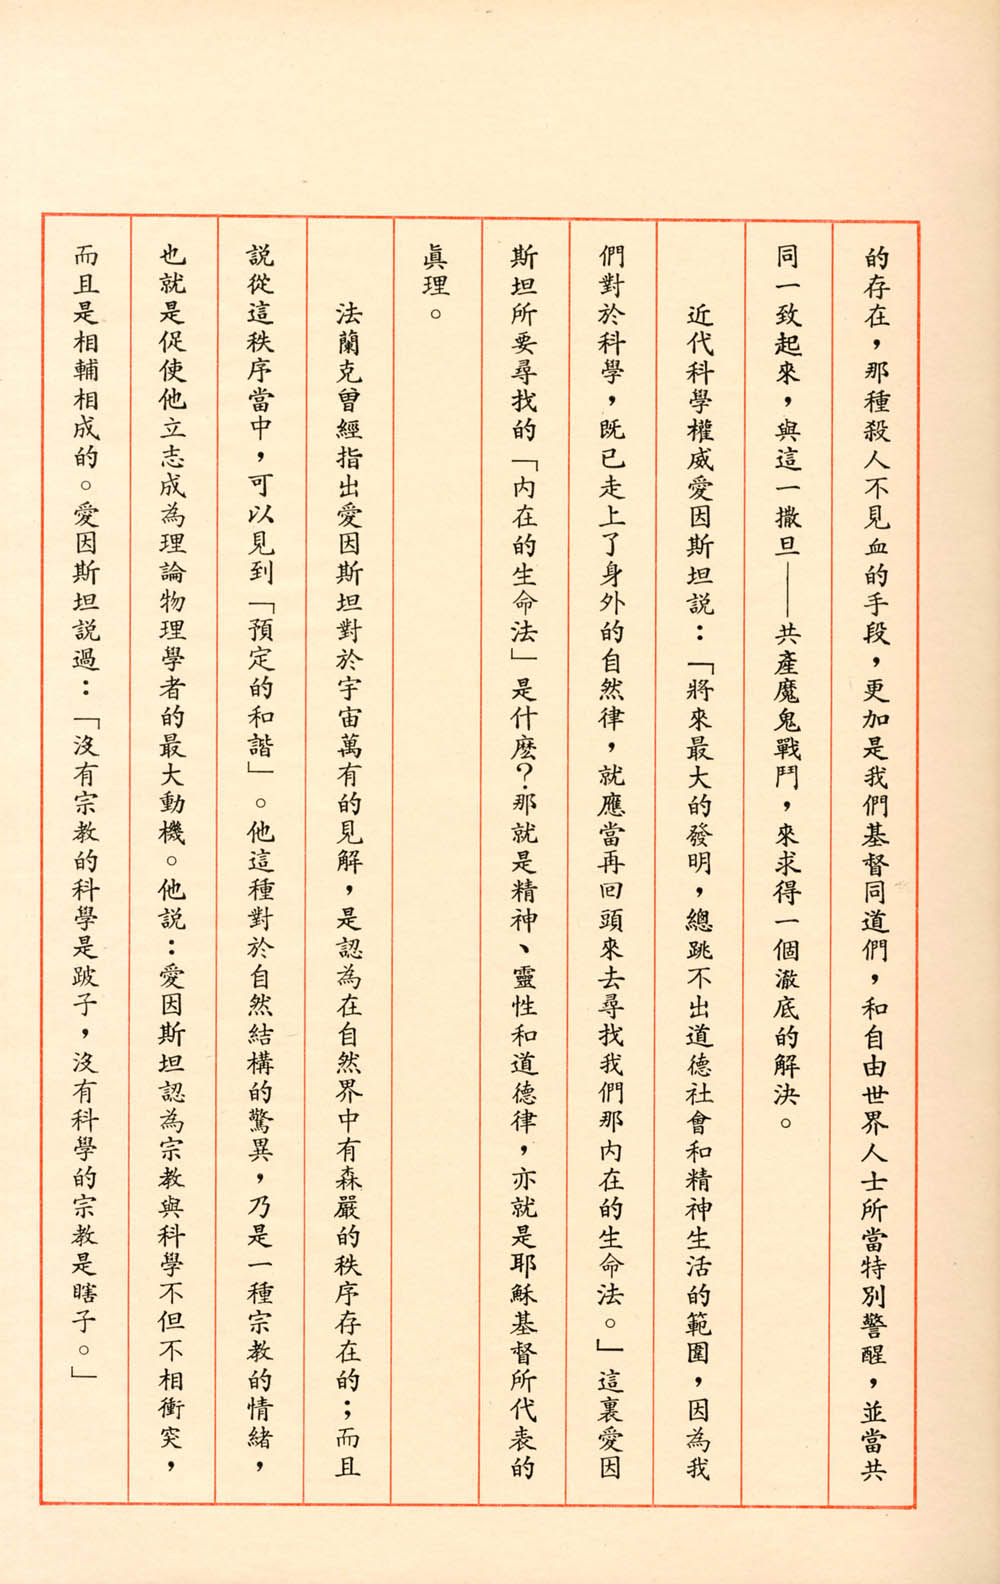 的存在，那種殺人不見血的手段，更加是我們基督同道們，和自由世界人士所當特別警醒，並當共
同一致起來，與這一撒旦——共產魔鬼戰鬥，來求得一個澈底的解決。
近代科學權威愛因斯坦説：「將來最大的發明，總跳不出道德社會和精神生活的範圍，因為我
們對於科學，既已走上了身外的自然律，就應當再回頭來去尋找我們那內在的生命法。」這裏愛因
斯坦所要尋找的「內在的生命法」是什麼？那就是精神、靈性和道德律，亦就是耶穌基督所代表的
眞理。
法蘭克曾經指出愛因斯坦對於宇宙萬有的見解，是認為在自然界中有森嚴的秩序存在的；而且
説從這秩序當中，可以見到「預定的和諧」。他這種對於自然結構的驚異，乃是一種宗教的情緒，
也就是促使他立志成為理論物理學者的最大動機。他説：愛因斯坦認為宗教與科學不但不相衝突，
而且是相輔相成的。愛因斯坦説過：「沒有宗教的科學是跛子，沒有科學的宗教是瞎子。」